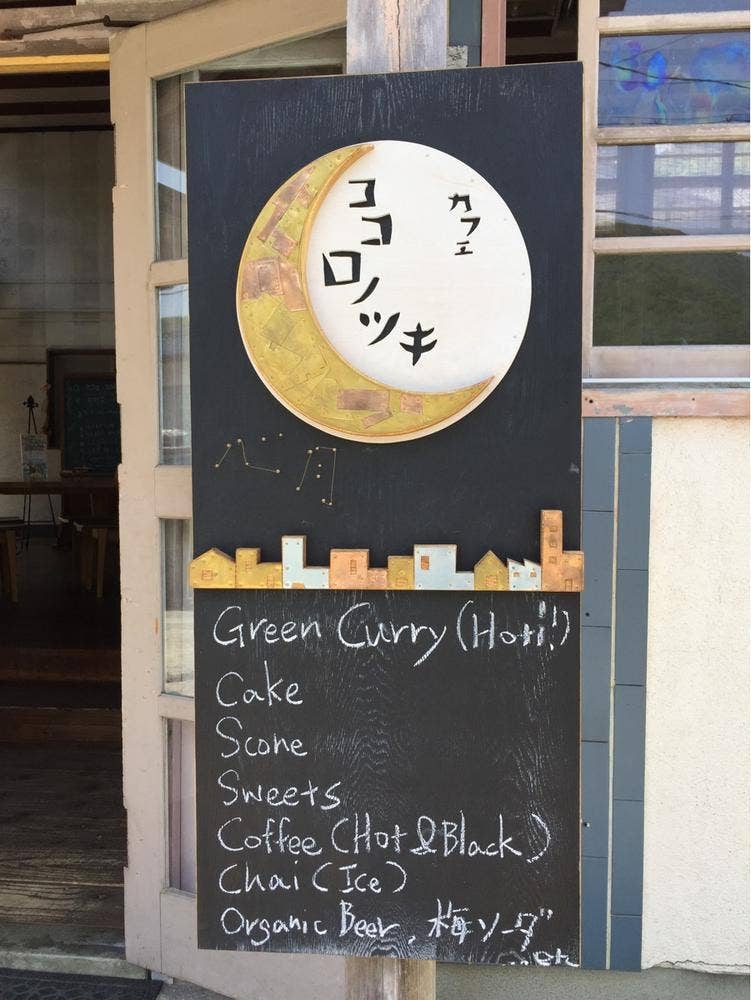 カフェ
ココロノツキ
心月
Green Curry (Hot!!)
Cake
Scone
Sweets
Coffee (Hot & Black)
Chai (Ice)
Organic Beer, 梅ソーダ
...etc